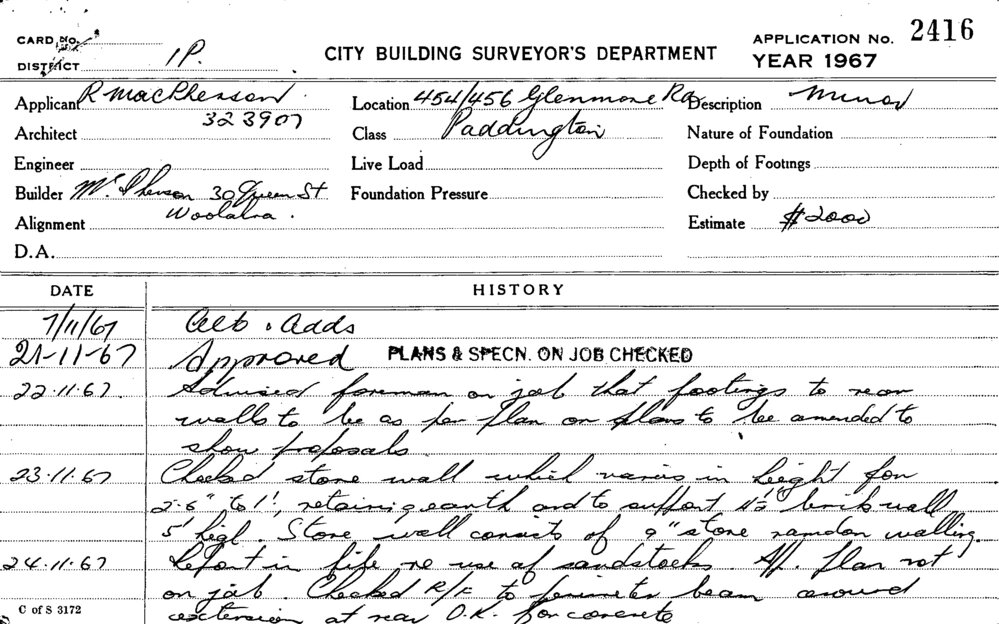 CARD No.
DISTRICT 1P.
CITY BUILDING SURVEYOR'S DEPARTMENT
APPLICATION No. 2416
YEAR 1967
Applicant R MacPherson
323907
Architect
Engineer
Builder McPherson 30 Queen St
Woolahra.
Alignment
D.A.
Location 454/456 Glenmore Rd
Class Paddington
Live Load
Foundation Pressure
Description Minor
Nature of Foundation
Depth of Footings
Checked by
Estimate $2000
DATE
HISTORY
7/11/67 Alts. Adds
21-11-67 Approved PLANS & SPECN. ON JOB CHECKED
22.11.67. Advised foreman on job that footings to rear
walls to be as per plan or plans to be amended to
show proposals.
23.11.67 Checked stone wall which varies in height from
2'-6" to 1', retaining earth and to support 4½" brick wall
5' high. Stone wall consists of 9" stone random walling.
24.11.67 Report in file re use of sandstocks. App. plan not
on job. Checked R/F to perimeter beam around
extension at rear O.K. for concrete
C of S 3172